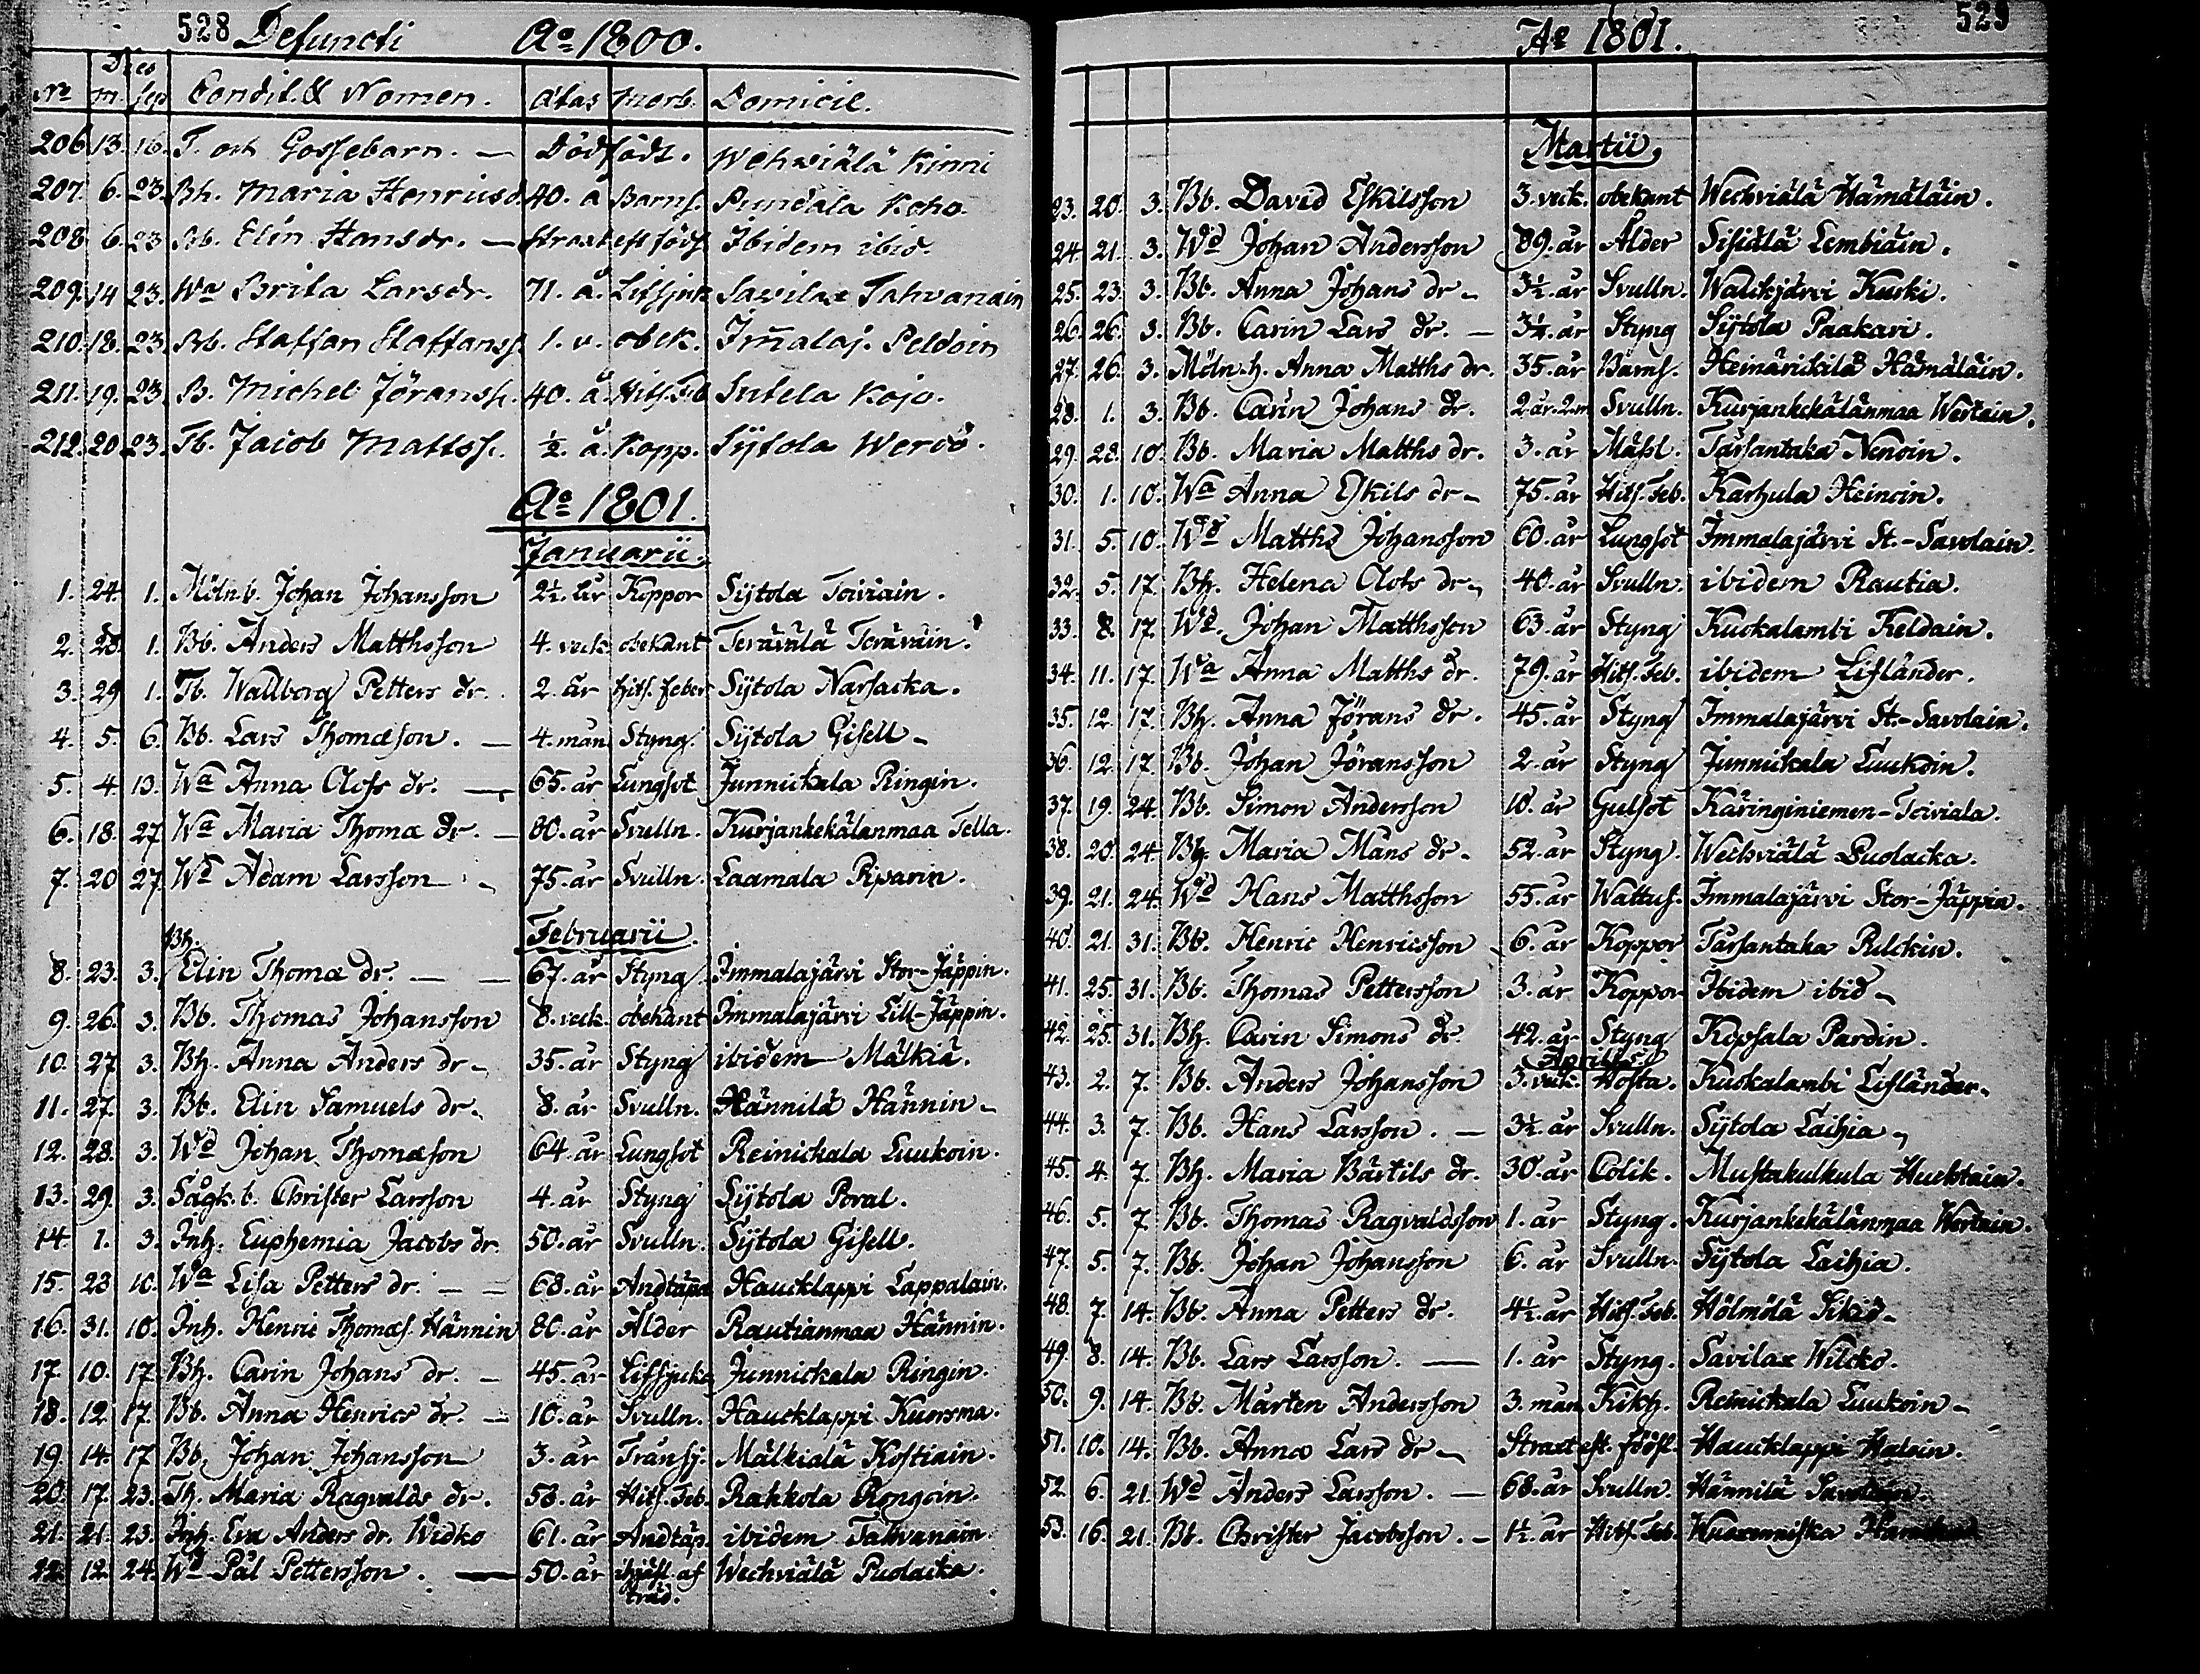 528 Defuncti Ao 1800.
Dies
No m. sep Condit. & Nomen. Ætas Morb. Domicil.
206. 13. 16. T. och Gossebarn. — Dödfödt. Wehwiälä Kinni
207. 6. 23. Bh. Maria Henrics d. 40. å Barns. Pundala Koho.
208. 6. 23. Bb. Elin Hansdr. — straxt eft. föds. Ibidem ibid.
209. 14. 23. Wa Brita Larsdr. 71. å. Lifsjuk Savilax Tahvanain
210. 18. 23. Bb. Staffan Staffanss. 1. v. obek. Im̅alaj. Peldoin
211. 19. 23. B. Michel Jöranss. 40. å. Hits. Feb Sutela Kojo.
212. 20. 23. Tb. Jacob Mattss. ½. å. Kopp. Sijtola Wervo.
Ao 1801.
Januarii.
1. 24. 1. Möln.b. Johan Johansson 2½. år Koppor Sijtola Toiviain.
2. 28. 1. Bb. Anders Matthsson 4. veck obekant Terävälä Teräväin.
3. 29. 1. Tb. Wallborg Petters dr. 2. år hits. feber Sijtola Narsacka.
4. 5. 6. Bb. Lars Thomæson. — 4. mån Styng. Sijtola Gisell –
5. 4. 13. Wa Anna Olofs dr. — 65. år Lungsot Junnickala Ringin.
6. 18. 27 Wa Maria Thomæ dr. – 80. år Svulln. Kurjankekälänmaa Tella.
7. 20 27. Wd Adam Larsson – 75. år Svulln. Laamala Riparin.
Februarii.
8. 23. 3. Bh. Elin Thomæ dr. — — 67. år Styng Immalajärvi Stor-Jäppin.
9. 26. 3. Bb. Thomas Johansson 8. veck. obekant Immalajärvi Lill-Jäppin.
10. 27 3. Bh. Anna Anders dr – 35. år Styng ibidem Mälkiä.
11. 27. 3. Bb. Elin Samuels dr. 8. år Svulln. Hännilä Hännin –
12. 28. 3. Wd Johan Thomæson 64. år Lungsot Reinickala Luukoin.
13. 29. 3. Sågk. b. Christer Larsson 4. år Styng Sijtola Poval.
14. 1. 3. Inh. Euphemia Jacobs dr. 50. år Svulln. Sijtola Gisell.
15. 23 10. Wa Lisa Petters dr. — — 68. år Andtäpa Haucklappi Lappalain.
16. 31. 10. Inh. Henric Thomæs. Hännin 80. år Ålder Rautianmaa Hännin.
17. 10. 17. Bh. Carin Johans dr. – 45. år Lifsjuka Junnickala Ringin.
18. 12. 17. Bb. Anna Henrics dr. — 10. år Svulln. Haucklappi Kuorsma.
19. 14. 17 Bb. Johan Johansson 3. år Transj. Mälkiälä Kostiain.
20. 17. 23. Th. Maria Ragvalds dr. 58. år Hits. Feb. Rakkola Rongoin.
21. 21. 23. Inh. Eva Anders dr. Widko 61. år Andtäp. ibidem Tahvanain
22. 12. 24. Wd Pål Pettersson. — 50. år ihjälsl. af träd. Wechviälä Puolacka.
Ao 1801. 529
Martii,
23. 20. 3. Bb. David Eskilsson 3. veck. obekant Wechviälä Hämäläin.
24. 21. 3. Wd Johan Andersson 89. år Ålder Sisiälä Lembiäin.
25. 23. 3. Bb. Anna Johans dr – 3½. år Svulln. Walckjärvi Kurki.
26. 26. 3. Bb. Carin Lars dr. — 3½. år Styng Sijtola Paakari.
27. 26. 3. Möln.h. Anna Matths dr. 35. år Barns. Heinärickilä Hämäläin.
28. 1. 3. Bb. Carin Johans dr. 2 år. 2.m Svulln. Kurjankekälänmaa Wertain.
29. 28. 10. Bb. Maria Matths dr. 3. år Mäsl. Tarsantaka Nenoin.
30. 1. 10. Wa Anna Eskils dr – 75. år Hits. Feb. Karhula Heinoin.
31. 5. 10. Wd Matths Johansson 60. år Lungsot Immalajärvi St.-Savolain.
32. 5. 17. Bh. Helena Olofs dr – 40. år Svulln. ibidem Rautia.
33. 8. 17. Wd. Johan Matthsson 63. år Styng Kuokalambi Keldain.
34. 11. 17. Wa Anna Matths dr. 79. år Hits. Feb. ibidem Lifländer.
35. 12. 17. Bh. Anna Jörans dr. 45. år Styng Immalajärvi St.-Savolain.
36. 12. 17. Bb. Johan Jöransson 2. år Styng Junnickala Luukoin.
37. 19. 24. Bb. Simon Andersson 10. år Gulsot Käringiniemen-Toiviala.
38. 20. 24. Bh. Maria Måns dr. 52. år Styng. Wechviälä Puolacka.
39. 21. 24. Wd Hans Matthsson 55. år Wattus. Immalajärvi Stor-Jäppin.
40. 21. 31. Bb. Henric Henricsson 6. år Koppor Tarsantaka Pulckin.
41. 25. 31. Bb. Thomas Pettersson 3. år Koppor Ibidem ibid –
42. 25. 31. Bh. Carin Simons dr. 42. år Styng Kopsala Pardin.
Aprilis
43. 2. 7. Bb. Anders Johansson 3. veck. Hosta. Kuokalambi Lifländer.
44. 3. 7. Bb. Hans Larsson. — 3½. år Svulln. Sijtola Laihia –
45. 4. 7. Bh. Maria Bärtils dr. 30. år Colik. Mustakulkula Huchtain.
46. 5. 7 Bb. Thomas Ragvaldsson 1. år Styng. Kurjankekälänmaa Wertain.
47. 5. 7. Bb. Johan Johansson 6. år Svulln. Sijtola Laihia.
48. 7. 14. Bb. Anna Petters dr. 4½. år Hits. Feb. Hölmölä Sikiö –
49. 8. 14. Bb. Lars Larsson. — 1. år Styng. Savilax Wilcko.
50. 9. 14. Bb. Mårten Andersson 3. mån Kikh. Reinickala Luukoin –
51. 10. 14. Bb. Anna Lars dr – Straxt eft. födsl. Haucklappi Halain.
52. 6. 21. Wd Anders Larsson. — 68. år Svulln. Hännilä Savolain.
53. 16. 21. Bb. Christer Jacobsson. – 1½. år Hits. Feb. Wuoxenniska